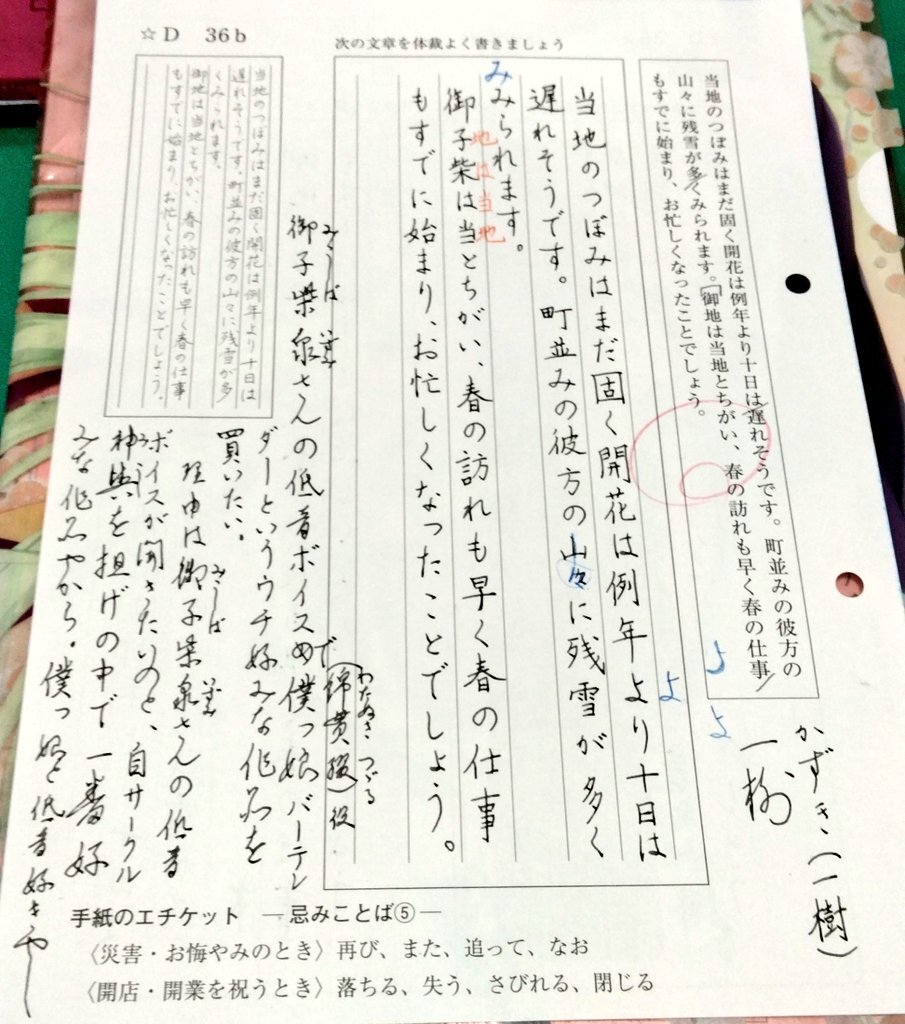 ☆D 36b
次の文章を体裁よく書きましょう
当地のつぼみはまだ固く開花は例年より十日は遅れそうです。町並みの彼方の
山々に残雪が多くみられます。「御地は当地とちがい、春の訪れも早く春の仕事
もすでに始まり、お忙しくなったことでしょう。
かずき(一樹)
一樹
よ
よ
よ
当地のつぼみはまだ固く開花は例年より十日は
遅れそうです。町並みの彼方の山々に残雪が多く
み
みられます。
地は当地
御子柴は当とちがい、春の訪れも早く春の仕事
もすでに始まり、お忙しくなったことでしょう。
当地のつぼみはまだ固く開花は例年より十日は
遅れそうです。町並みの彼方の山々に残雪が多
くみられます。
御地は当地とちがい、春の訪れも早く春の仕事
もすでに始まり、お忙しくなったことでしょう。
わたぬき つづる
(綿貫 綴)役
みこしば
御子柴泉さんの低音ボイスで僕っ娘バーテン
ダーというウチ好みな作品を
買いたい。
みこしば
理由は御子柴泉さんの低音
ボイスが聞きたいのと、自サークル
神輿を担げの中で一番好
みな作品やから。僕っ娘と低音好きやし
手紙のエチケット ―忌みことば⑤―
〈災害・お悔やみのとき〉再び、また、追って、なお
〈開店・開業を祝うとき〉落ちる、失う、さびれる、閉じる